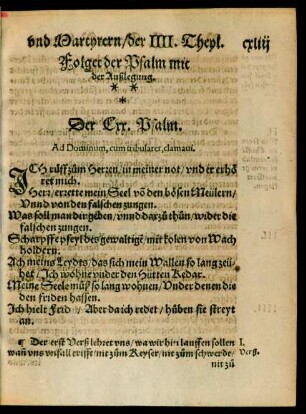 vnd Martyrern/der IIII. Theyl. cxliij
Folget der Psalm mit
der Außlegung.
* *
*
Der Cxx. Psalm.
Ad Dominum, cum tribularer, clamaui.
ICH rüff zům Herren/ in meiner not/ vnd er erhö
ret mich.
Herr/ errette mein Seel võ den bösen Meülern/
Vnnd von den falschen zungen.
Was soll man dir geben/ vnnd dar zů thůn/ wider die
falschen zungen.
Scharpffe pfeyl des gewaltigẽ/ mit kolen von Wach
holdern.
Ach meins Leydts/ das sich mein Wallen so lang zeü
het/ Ich wohne vnder den Hütten Kedar.
Meine Seele můß so lang wohnen/ Vnder denen die
den friden hassen.
Ich hielt Frid/ Aber da ich redet/ hůben sie streyt
an.
¶ Der erst Verß lehret vns/ wa wir hin lauffen sollen I.
wañ vns vnfall trifft/ nit zům Keyser/ nit zům schwerde/ Verß.
nit zů